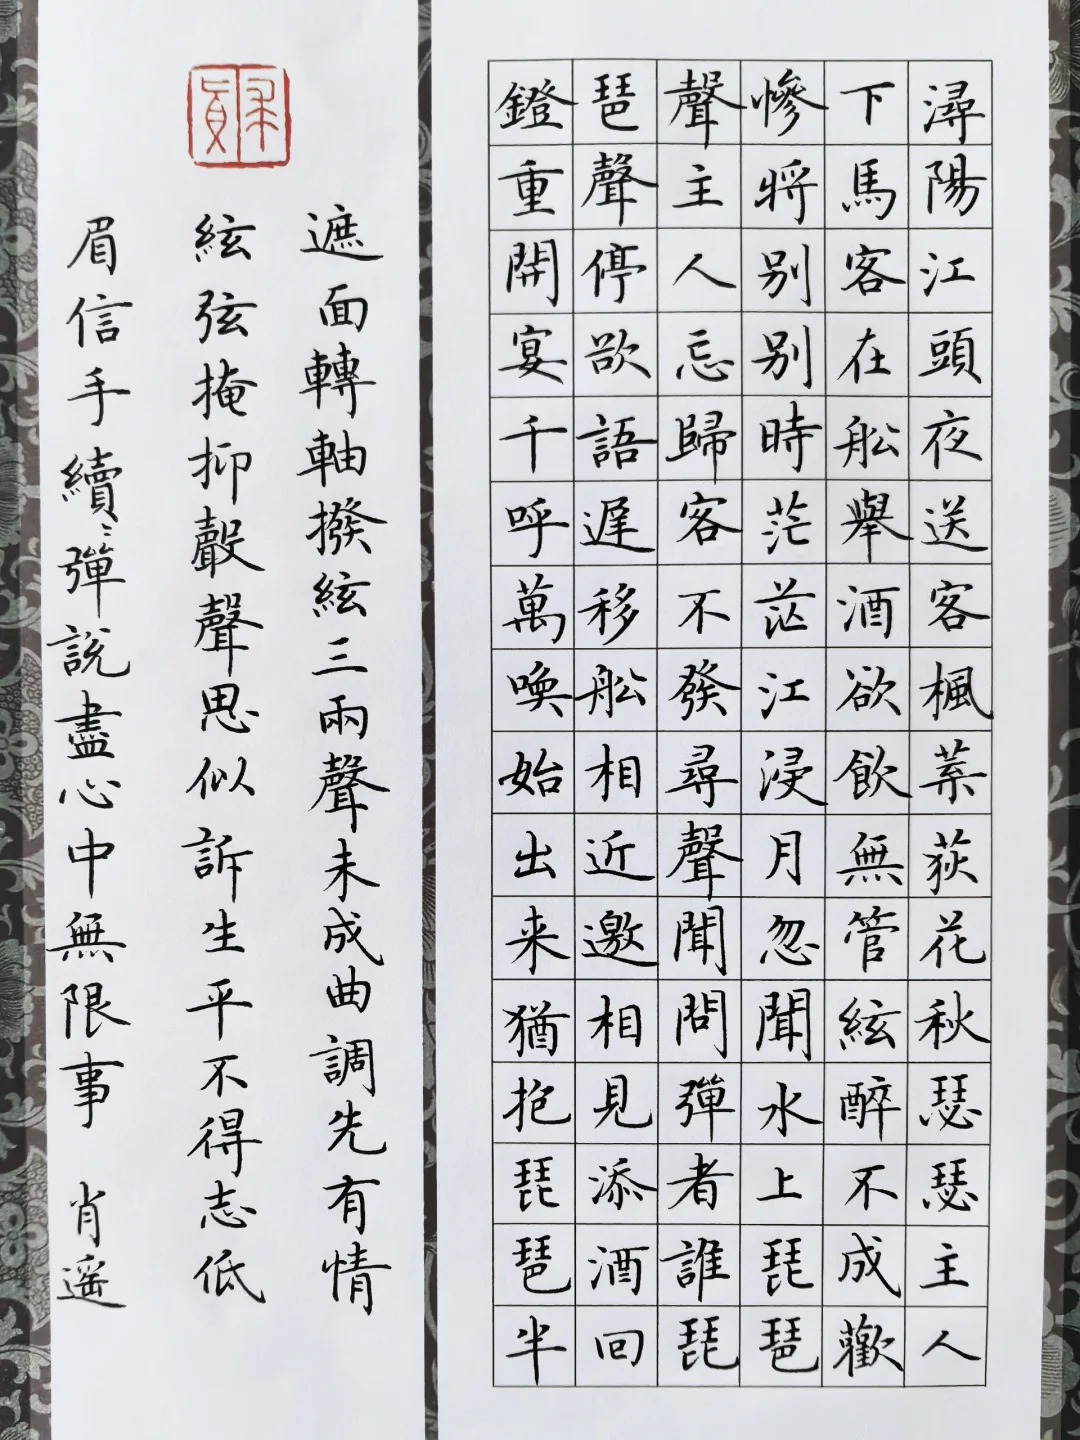 潯陽江頭夜送客楓葉荻花秋瑟瑟主人
下馬客在舩舉酒欲飲無管絃醉不成歡
慘將别别時茫茫江浸月忽聞水上琵琶
聲主人忘歸客不發尋聲聞問彈者誰琵
琶聲停欲語遲移舩相近邀相見添酒回
鐙重開宴千呼萬喚始出来猶抱琵琶半
遮面轉軸撥絃三兩聲未成曲調先有情
絃弦掩抑聲聲思似訴生平不得志低
眉信手續〻彈說盡心中無限事 肖遥